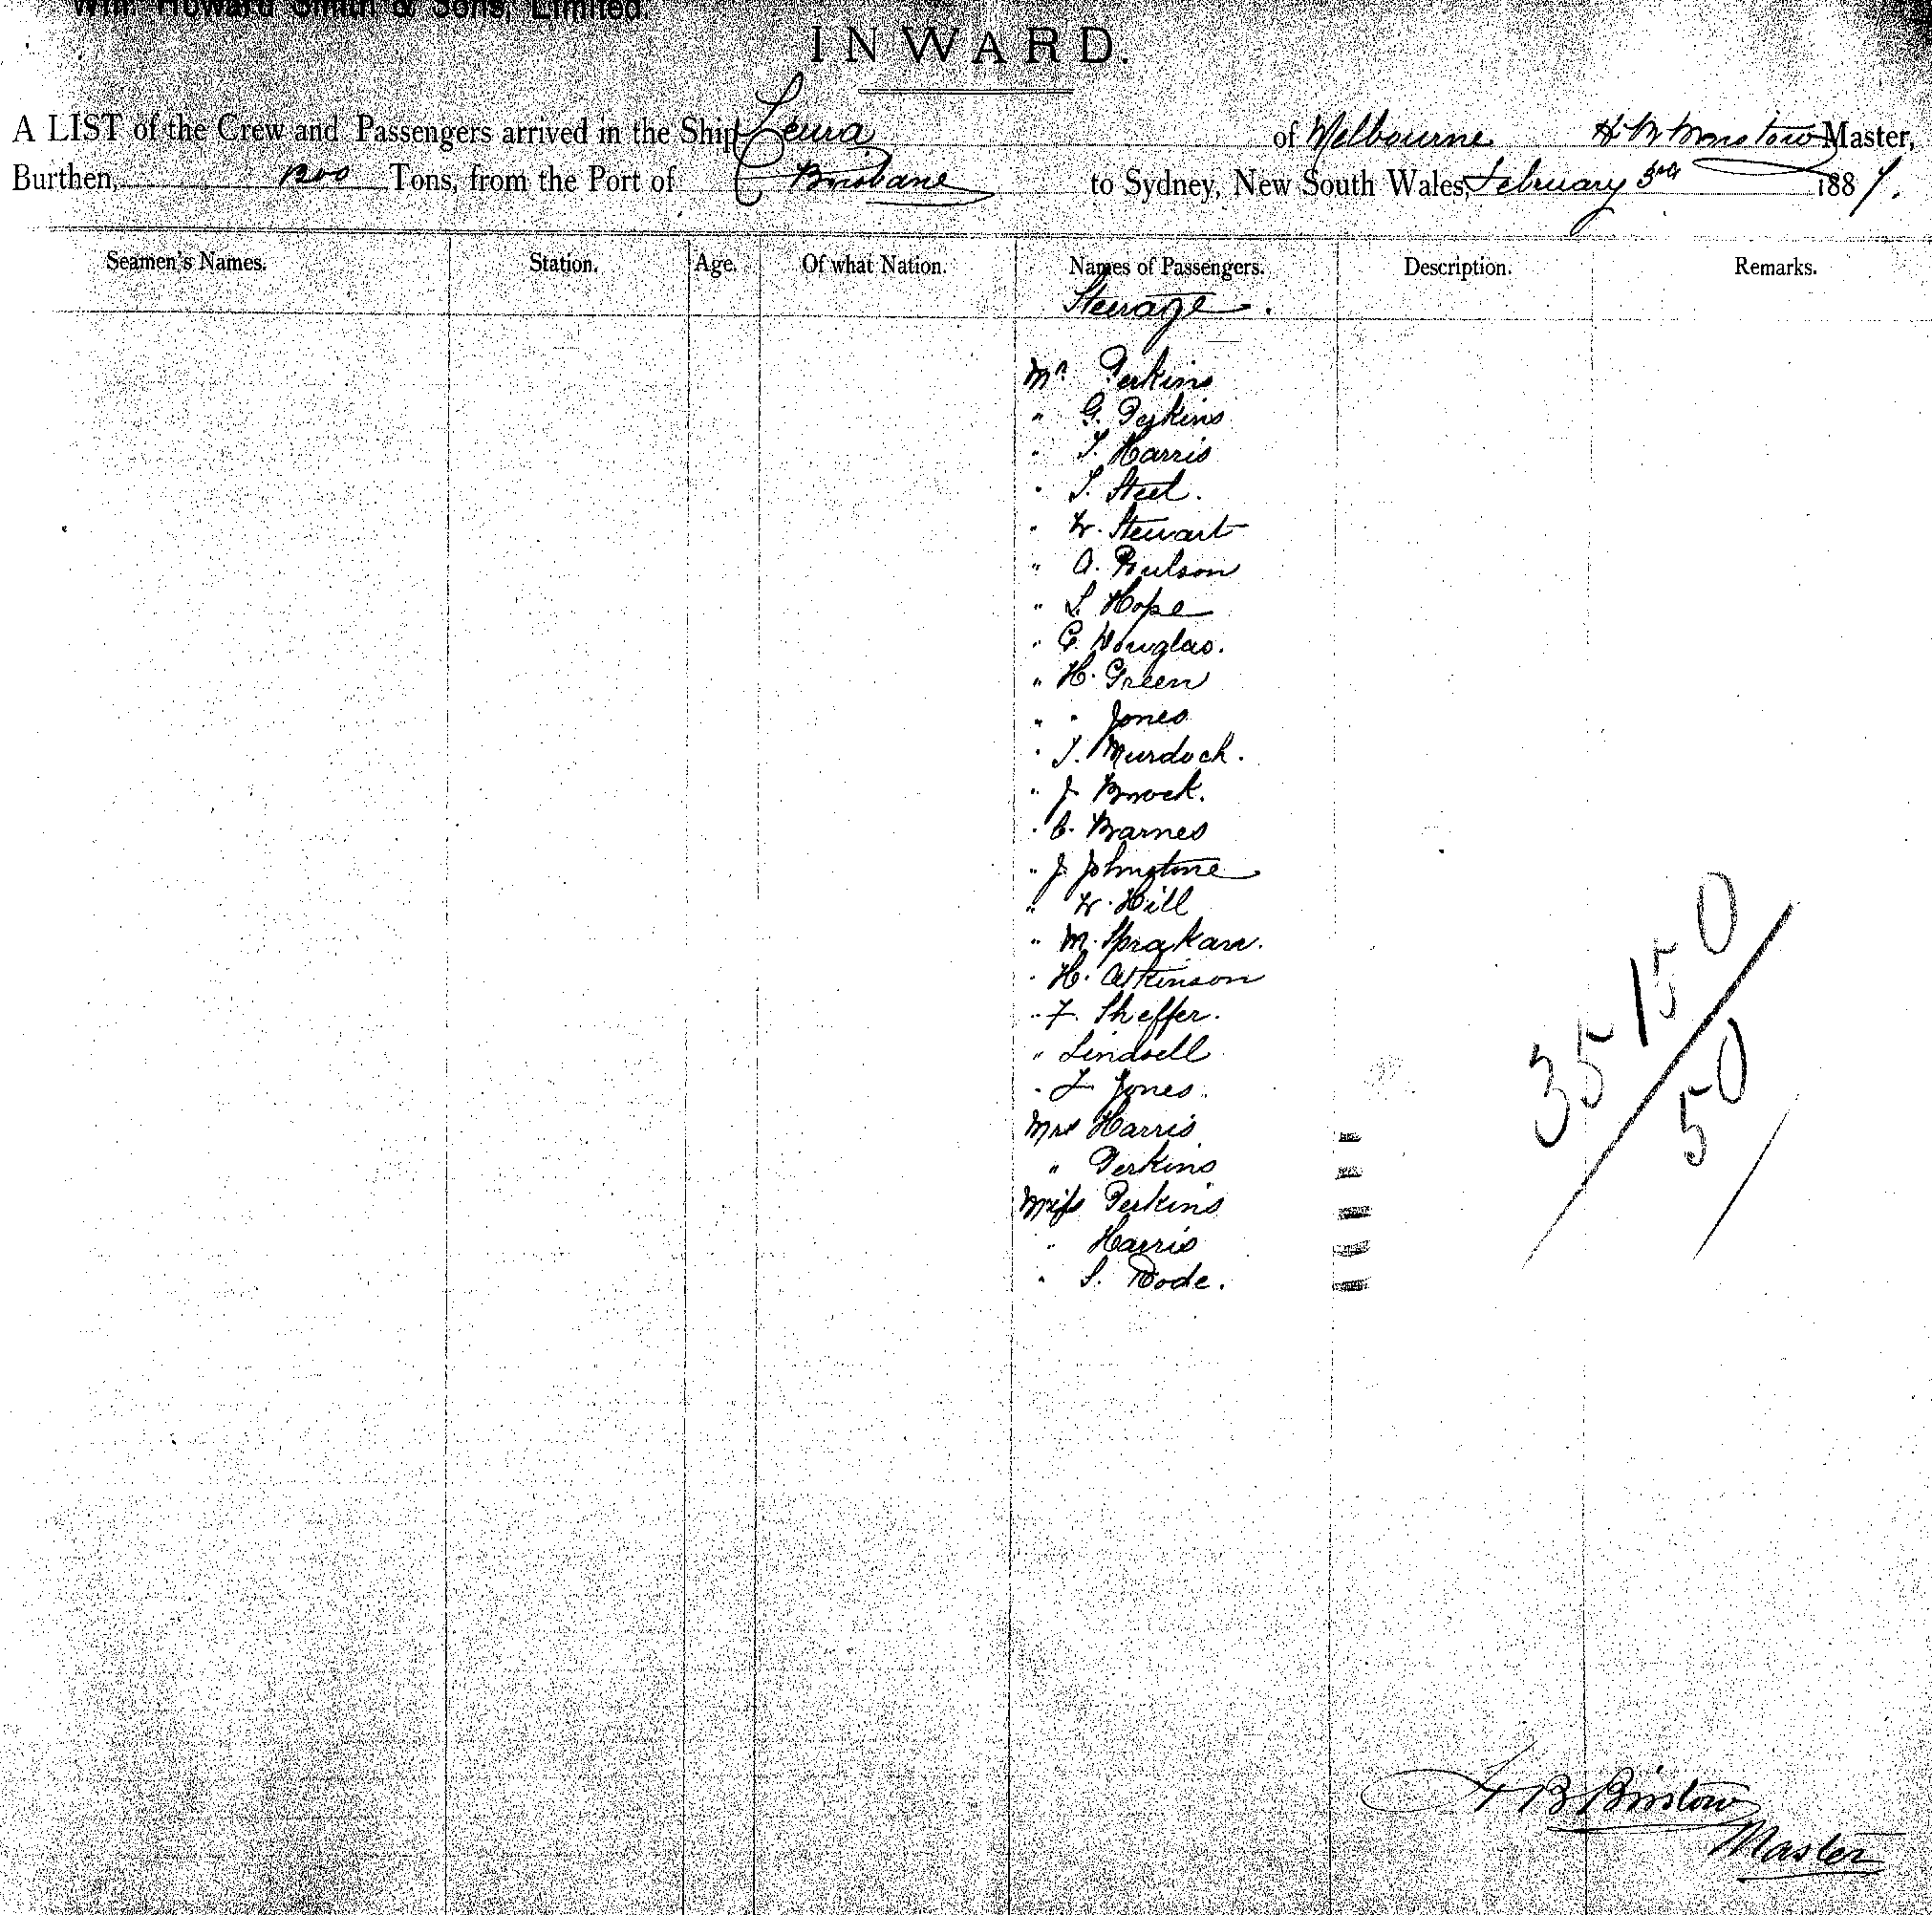 Wm. Howard Smith & Sons, Limited.
INWARD.
A LIST of the Crew and Passengers arrived in the Ship Leura of Melbourne H B Bristow Master,
Burthen, 1200 Tons, from the Port of Brisbane to Sydney, New South Wales, February 3rd 1887.
Seamen's Names. Station. Age. Of what Nation. Names of Passengers. Description. Remarks.
Steerage.
Mr Perkins
" G. Perkins
" T. Harris
" T. Steel.
" W. Stewart
" A. Poulson
" S. Hope
" C. Douglas.
" H. Green
" " Jones
" T. Murdoch.
" J Brock.
" C. Barnes
" J Johnstone
" W. Hill
" M. Sprakan.
" H. Atkinson
" F. Sheffer.
" Lindsell
" F Jones.
Mrs Harris
" Perkins
Miss Perkins
" Harris
" S. Dode.
35 150
50
H B Bristow
Master